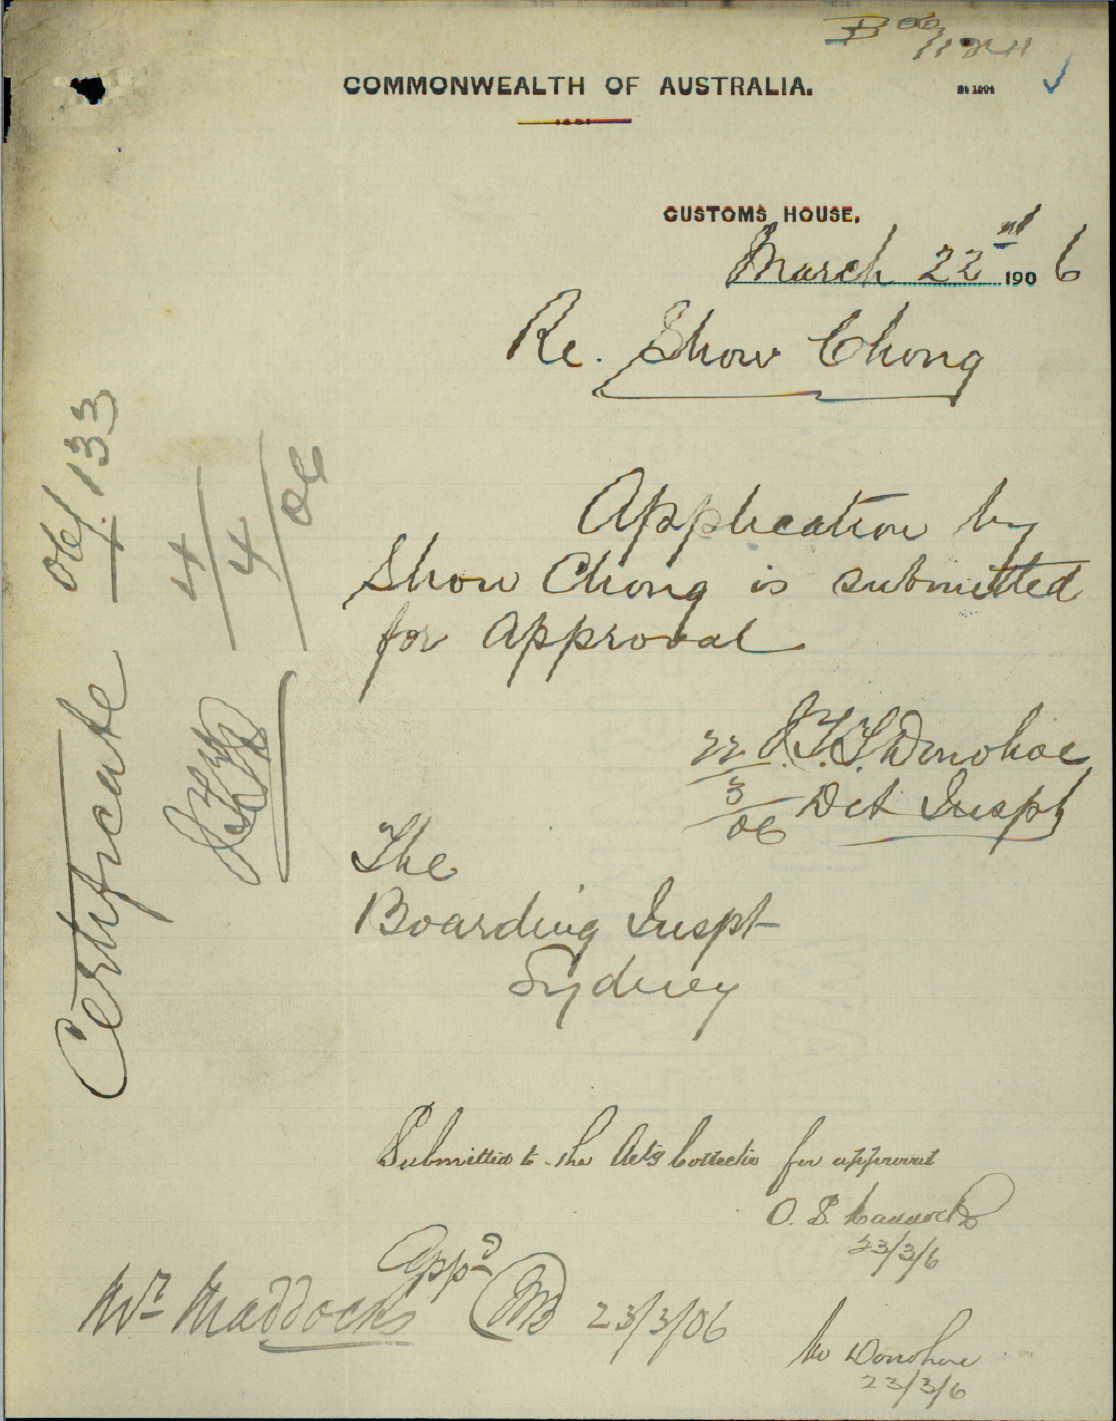 B 06/
COMMONWEALTH OF AUSTRALIA.
CUSTOMS HOUSE,
March 22nd 1906
Re. Show Chong
Application by
Show Chong is submitted
for approval
22/3/06 J.T.T. Donohoe
Det Inspt
The
Boarding Inspt
Sydney
Certificate 06/133
4/4/06
Submitted to the Actg Collector for approval
O. S. Maddocks
23/3/6
Appd
Mr Maddocks 23/3/06
Mr Donohoe
23/3/6